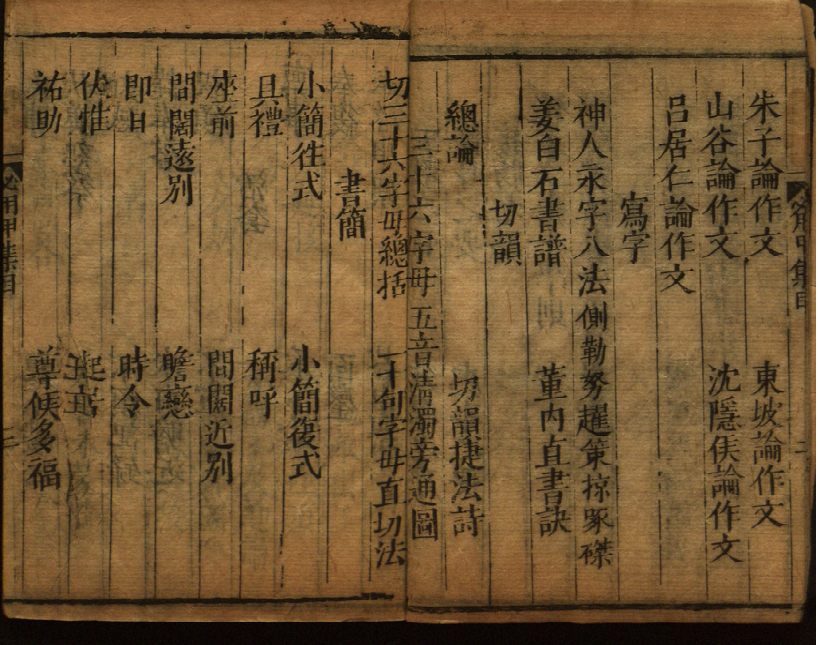 朱子論作文 東坡論作文
山谷論作文 沈隱侯論作文
呂居仁論作文
寫字
神人永字八法側勒努趯策掠啄磔
姜白石書譜 董內直書訣
切韻
總論 切韻捷法詩
三十六字母五音清濁旁通圖
切三十六字母總括 一十句字母直切法
書簡
小簡徃式 小簡復式
具禮 稱呼
座前 間闊近別
間闊遠別 瞻戀
即日 時令
伏惟 起居
祐助 尊候多福
必用甲集目
二